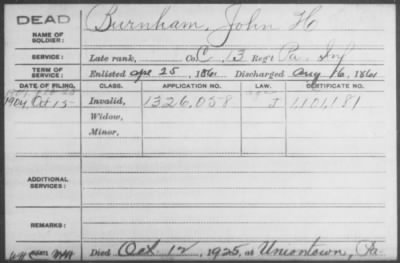 DEAD
NAME OF SOLDIER:
Burnham, John H
SERVICE:
Late rank, Co. C, 13 Reg't Pa. Inf
TERM OF SERVICE:
Enlisted Apr 25, 1861 Discharged Aug 6, 1861
DATE OF FILING. CLASS. APPLICATION NO. LAW. CERTIFICATE NO.
1904 Oct 15 Invalid, 1326,058 J 1,101,181
Widow,
Minor,
ADDITIONAL SERVICES:
REMARKS:
Died Oct 12, 1925, at Uniontown, Pa